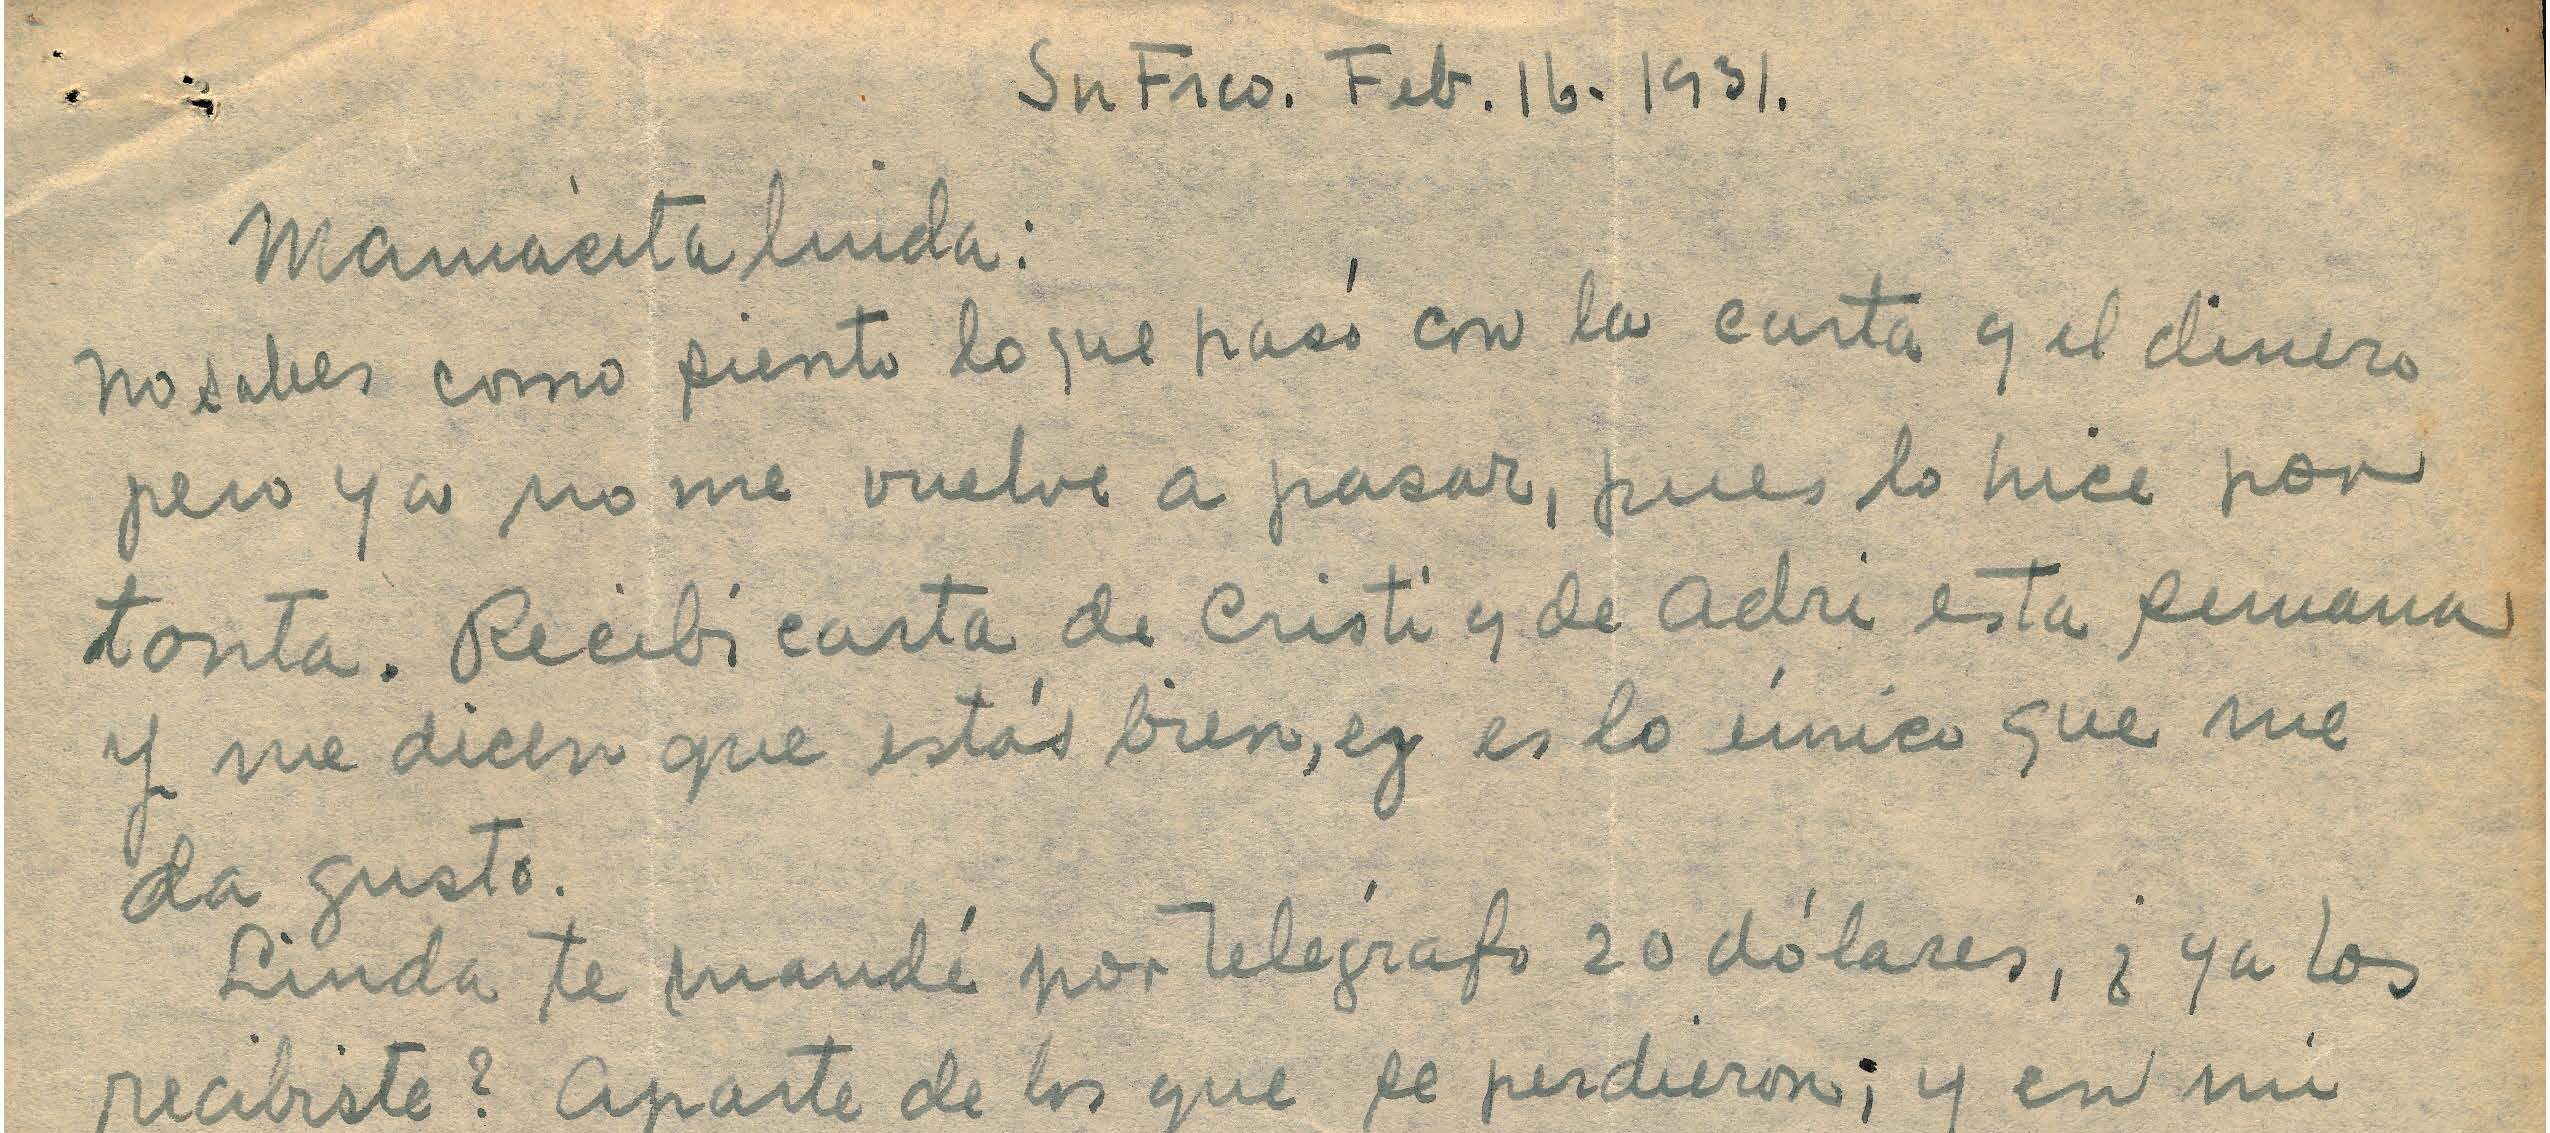 Sn Frco. Feb. 16. 1931.
Mamacita linda:
no sabes como siento lo que pasó con la carta y el dinero
pero ya no me vuelve a pasar, pues lo hice por
tonta. Recibí carta de Cristi y de Adri esta semana
y me dicen que estás bien, ey es lo único que me
da gusto.
Linda te mandé por telégrafo 20 dólares, ¿ ya los
recibiste? Aparte de los que se perdieron; y en mi